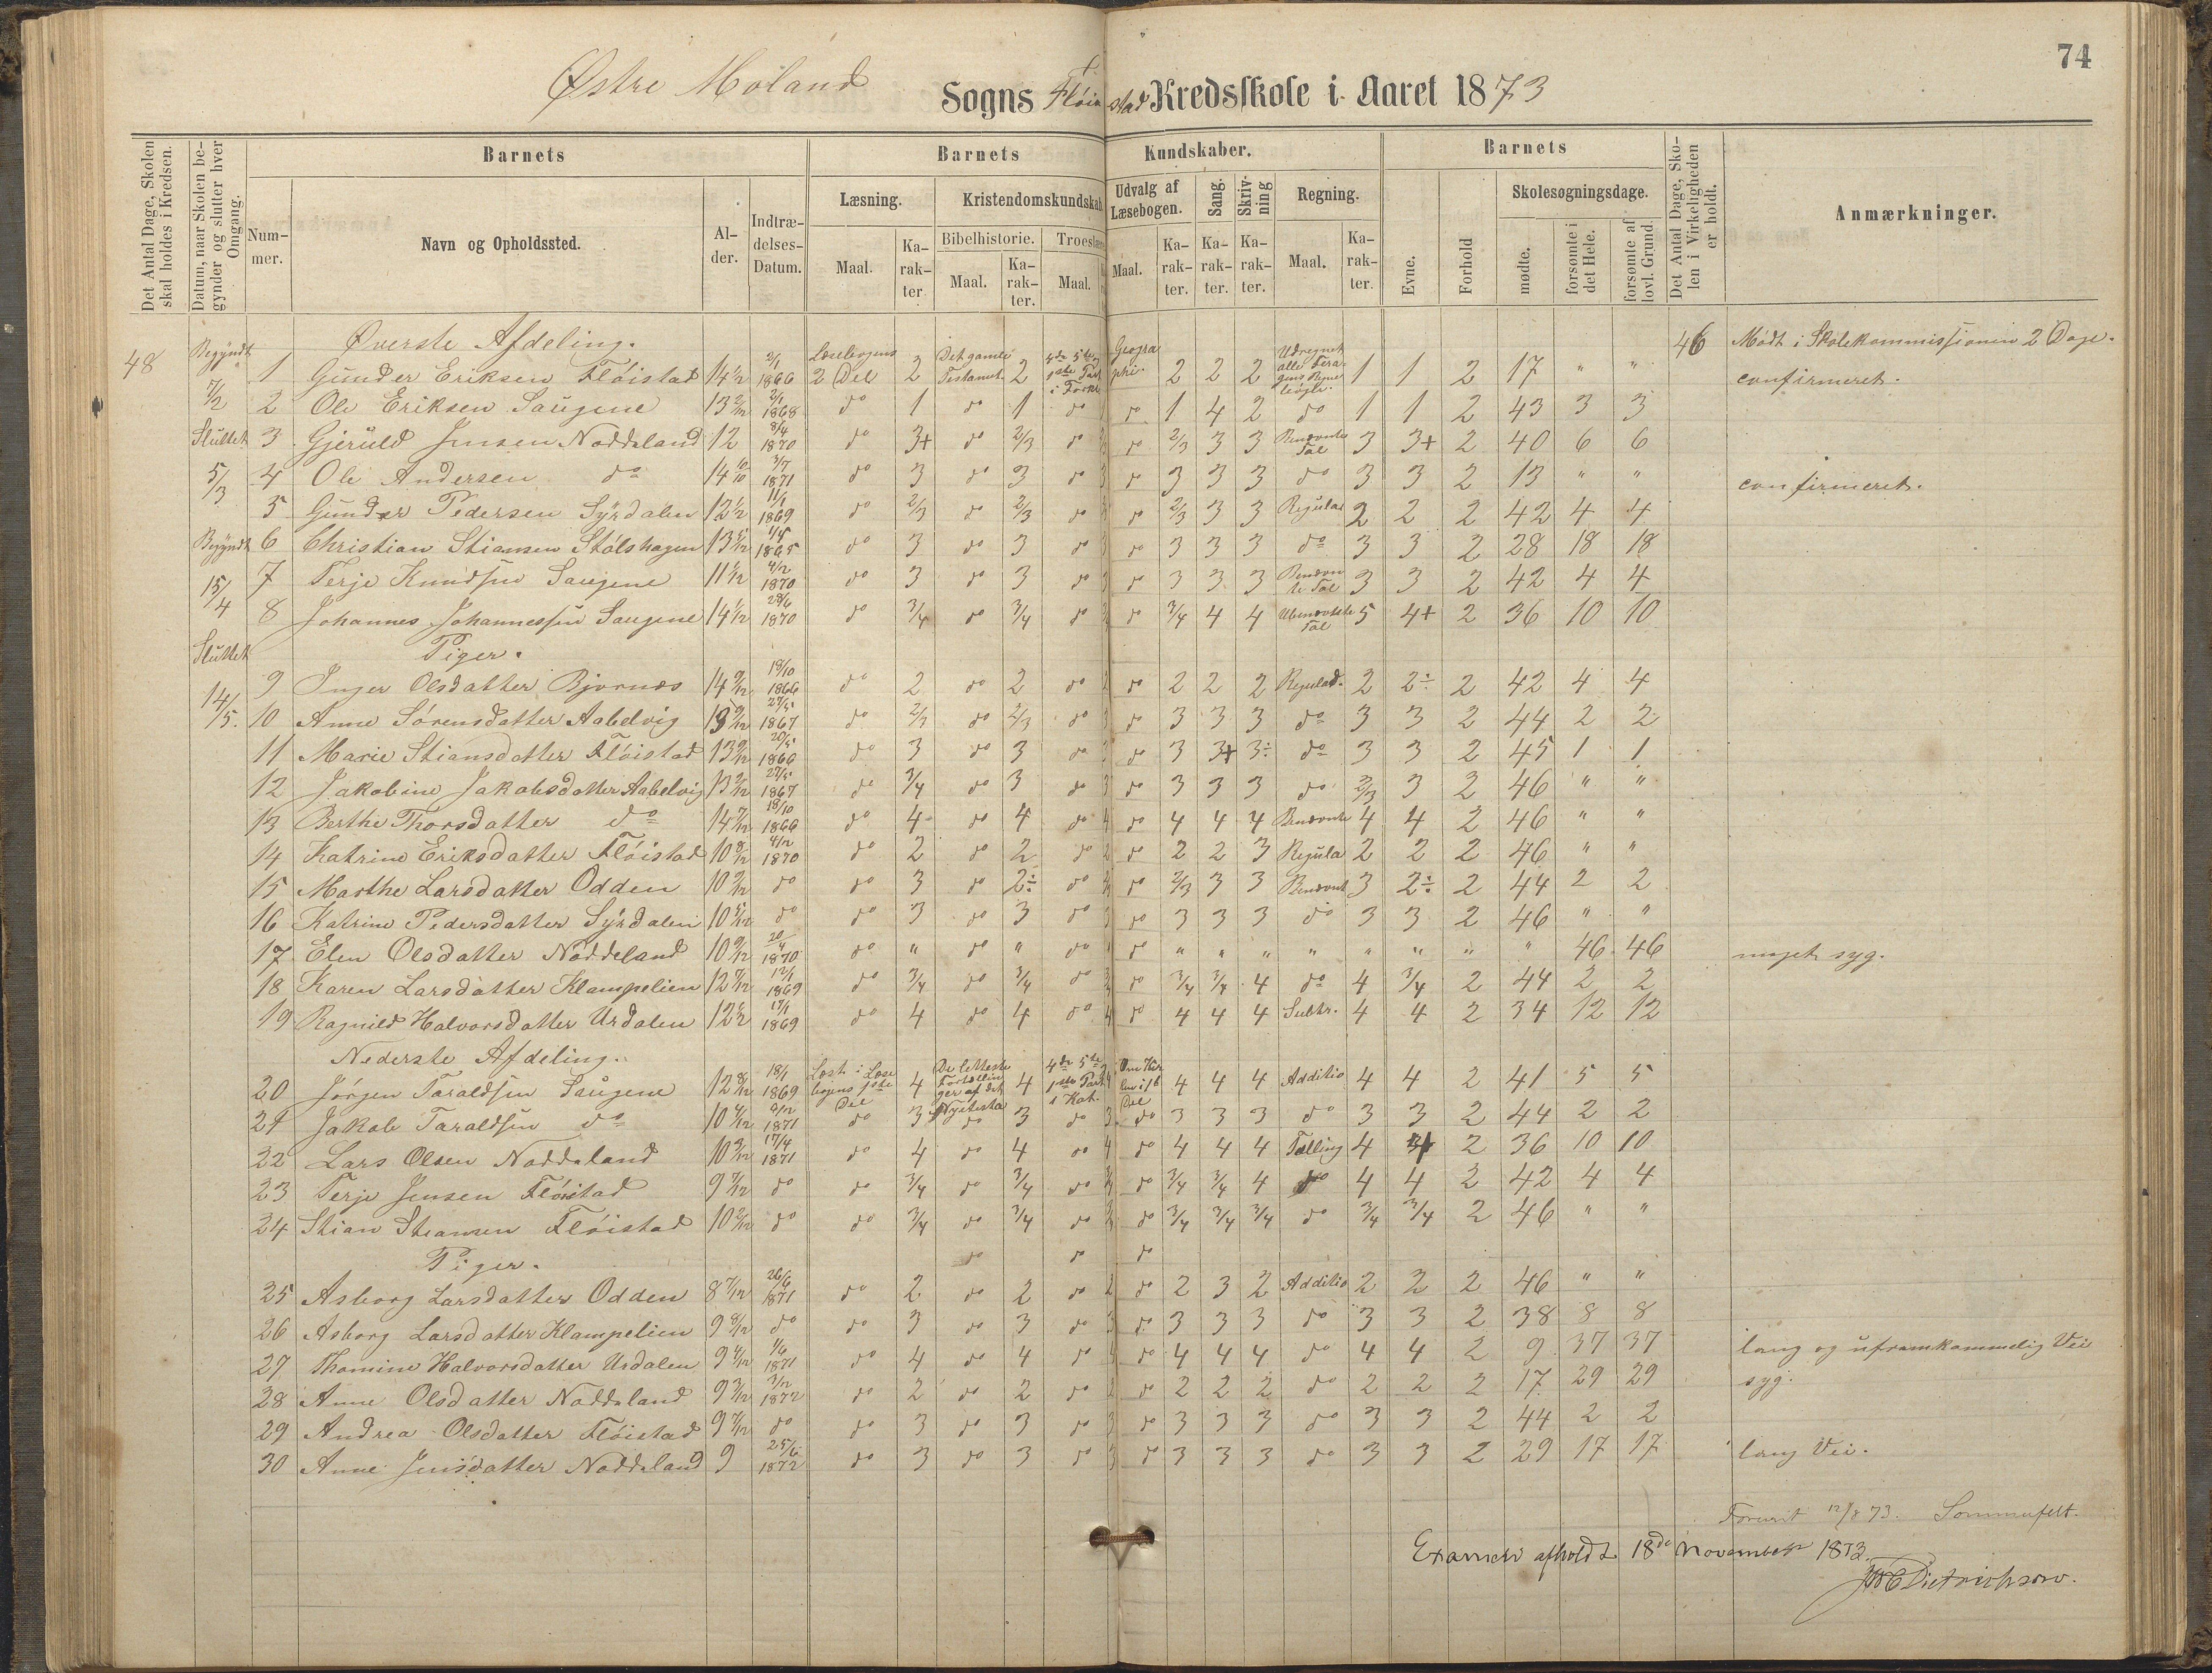 74
Østre Moland Sogns Fløistad Kredsskole i Aaret 1873
Det Antal Dage, Skolen skal holdes i Kredsen.
Datum, naar Skolen begynder og slutter hver Omgang.
Barnets
Barnets Kundskaber.
Barnets
Det Antal Dage, Skolen i Virkeligheden er holdt.
Anmærkninger.
Nummer. Navn og Opholdssted. Alder. Indtrædelses-Datum.
Læsning. Kristendomskundskab Udvalg af Læsebogen. Sang. Skrivning Regning. Evne. Forhold Skolesøgningsdage.
Bibelhistorie. Troeslære
Maal. Karakter Maal. Karakter. Maal. Maal. Karakter. Karakter. Karakter. Maal. Karakter. mødte. forsømte i det Hele. forsømte af lovl. Grund.
48 Begyndt 7/2 Sluttet 5/3 Begyndt 15/4 Sluttet 14/5.
Øverste Afdeling. 46 Mødt i Skolekommissionen 2 Dage.
1 Gunder Eriksen Fløistad 14 1/2 2/1 1866 Læsebogens 2 Del 2 Det gamle Testament. 2 4de 5te 1ste Part i Forkl. Geographi. 2 2 2 1 1 2 17 " " confirmeret.
2 Ole Eriksen Saugene 13 2/12 2/1 1868 do 1 do 1 do do 1 4 2 do 1 1 2 43 3 3
3 Gjeruld Jensen Noddeland 12 8/4 1870 do 3+ do 2/3 do do 2/3 3 3 Benævnte Tal 3 3+ 2 40 6 6
4 Ole Andersen do 14 3/7 1871 do 3 do 3 do 3 do 3 3 3 do 3 3 2 13 " " confirmeret.
5 Gunder Pedersen Syrdalen 12 1/2 11/1 1869 do 2/3 do 2/3 do do 2/3 3 3 Regula 2 2 2 42 4 4
6 Christian Stiansen Stølshagen 13 1865 do 3 do 3 do 3 do 3 3 3 do 3 3 2 28 18 18
7 Terje Knudsen Saugene 11 4/12 1870 do 3 do 3 do 3 do 3 3 3 Benævnte Tal 3 3 2 42 4 4
8 Johannes Johannessen Saugene 14 1/2 28/6 1870 do 3/4 do 3/4 do do 3/4 4 4 Ubenævnte Tal 5 4+ 2 36 10 10
Piger.
9 Inger Olsdatter Bjornæs 14 9/12 19/10 1866 do 2 do 2 do 2 do 2 2 2 Regulad. 2 2÷ 2 42 4 4
10 Anne Sørensdatter Aabelvig 13 9/12 27/5 1867 do 2/3 do 2/3 do 3 do 3 3 3 do 3 3 2 44 2 2
11 Marie Stiansdatter Fløistad 13 9/12 20/5 1866 do 3 do 3 do 3 do 3 3+ 3÷ do 3 3 2 45 1 1
12 Jakobine Jakobsdatter Aabelvig 13 27/5 1867 do 3/4 do 3 do 3 do 3 3 3 do 2/3 3 2 46 " "
13 Berthe Thorsdatter do 14 7/12 18/10 1866 do 4 do 4 do 4 do 4 4 4 Benævnte 4 4 2 46 " "
14 Katrine Eriksdatter Fløistad 10 8/12 4/12 1870 do 2 do 2 do 2 do 2 2 3 Regula 2 2 2 46 " "
15 Marthe Larsdatter Odden 10 9/12 do do 3 do 2÷ do do 2/3 3 3 Benævnt 3 2÷ 2 44 2 2
16 Katrine Pedersdatter Syrdalen 10 5/12 do do 3 do 3 do 3 do 3 3 3 do 3 3 2 46 " "
17 Elen Olsdatter Noddeland 10 9/12 20/4 1870 do " do " do " do " " " " " " " " 46 46 meget syg.
18 Karen Larsdatter Klampelien 12 7/12 12/1 1869 do 3/4 do 3/4 do 3/4 do 3/4 3/4 4 do 4 3/4 2 44 2 2
19 Ragnild Halvorsdatter Urdalen 12 17/1 1869 do 4 do 4 do 4 do 4 4 4 Subtr. 4 4 2 34 12 12
Nederste Afdeling.
20 Jørgen Taraldsen Saugene 12 8/12 18/1 1869 Læst i Læsebogens 1ste Del 4 De letteste Fortællinger af det Nyetesta 4 4de 5te 1ste Part i Kat. 4 4 4 4 Additio 4 4 2 41 5 5
21 Jakob Taraldsen do 10 4/12 8/12 1871 do 3 do 3 do 3 do 3 3 3 do 3 3 2 44 2 2
22 Lars Olsen Noddeland 10 9/12 17/4 1871 do 4 do 4 do 4 do 4 4 4 Tælling 4 4 2 36 10 10
23 Terje Jensen Fløistad 9 7/12 do do 3/4 do 3/4 do 3/4 do 3/4 3/4 4 do 4 4 2 42 4 4
24 Stian Steansen Fløistad 10 2/12 do do 3/4 do 3/4 do 3/4 do 3/4 3/4 3/4 do 3/4 3/4 2 46 " "
Piger. do do do
25 Asborg Larsdatter Odden 8 7/12 26/6 1871 do 2 do 2 do 2 do 2 3 2 Additio 2 2 2 46 " "
26 Asborg Larsdatter Klampelien 9 8/12 do do 3 do 3 do 3 do 3 3 3 do 3 3 2 38 8 8
27 Thomine Halvorsdatter Urdalen 9 4/12 1/6 1871 do 4 do 4 do 4 do 4 4 4 do 4 4 2 9 37 37 lang og uframkommelig Vei
28 Anne Olsdatter Noddeland 9 3/12 3/12 1872 do 2 do 2 do 2 do 2 2 2 do 2 2 2 17 29 29 syg.
29 Andrea Olsdatter Fløistad 9 7/12 do do 3 do 3 do 3 do 3 3 3 do 3 3 2 44 2 2
30 Anne Jensdatter Noddeland 9 25/6 1872 do 3 do 3 do 3 do 3 3 3 do 3 3 2 29 17 17 lang Vei.
12/8 73. Sommerfelt.
Examen afholdt 18de November 1873.
Dietrichson.